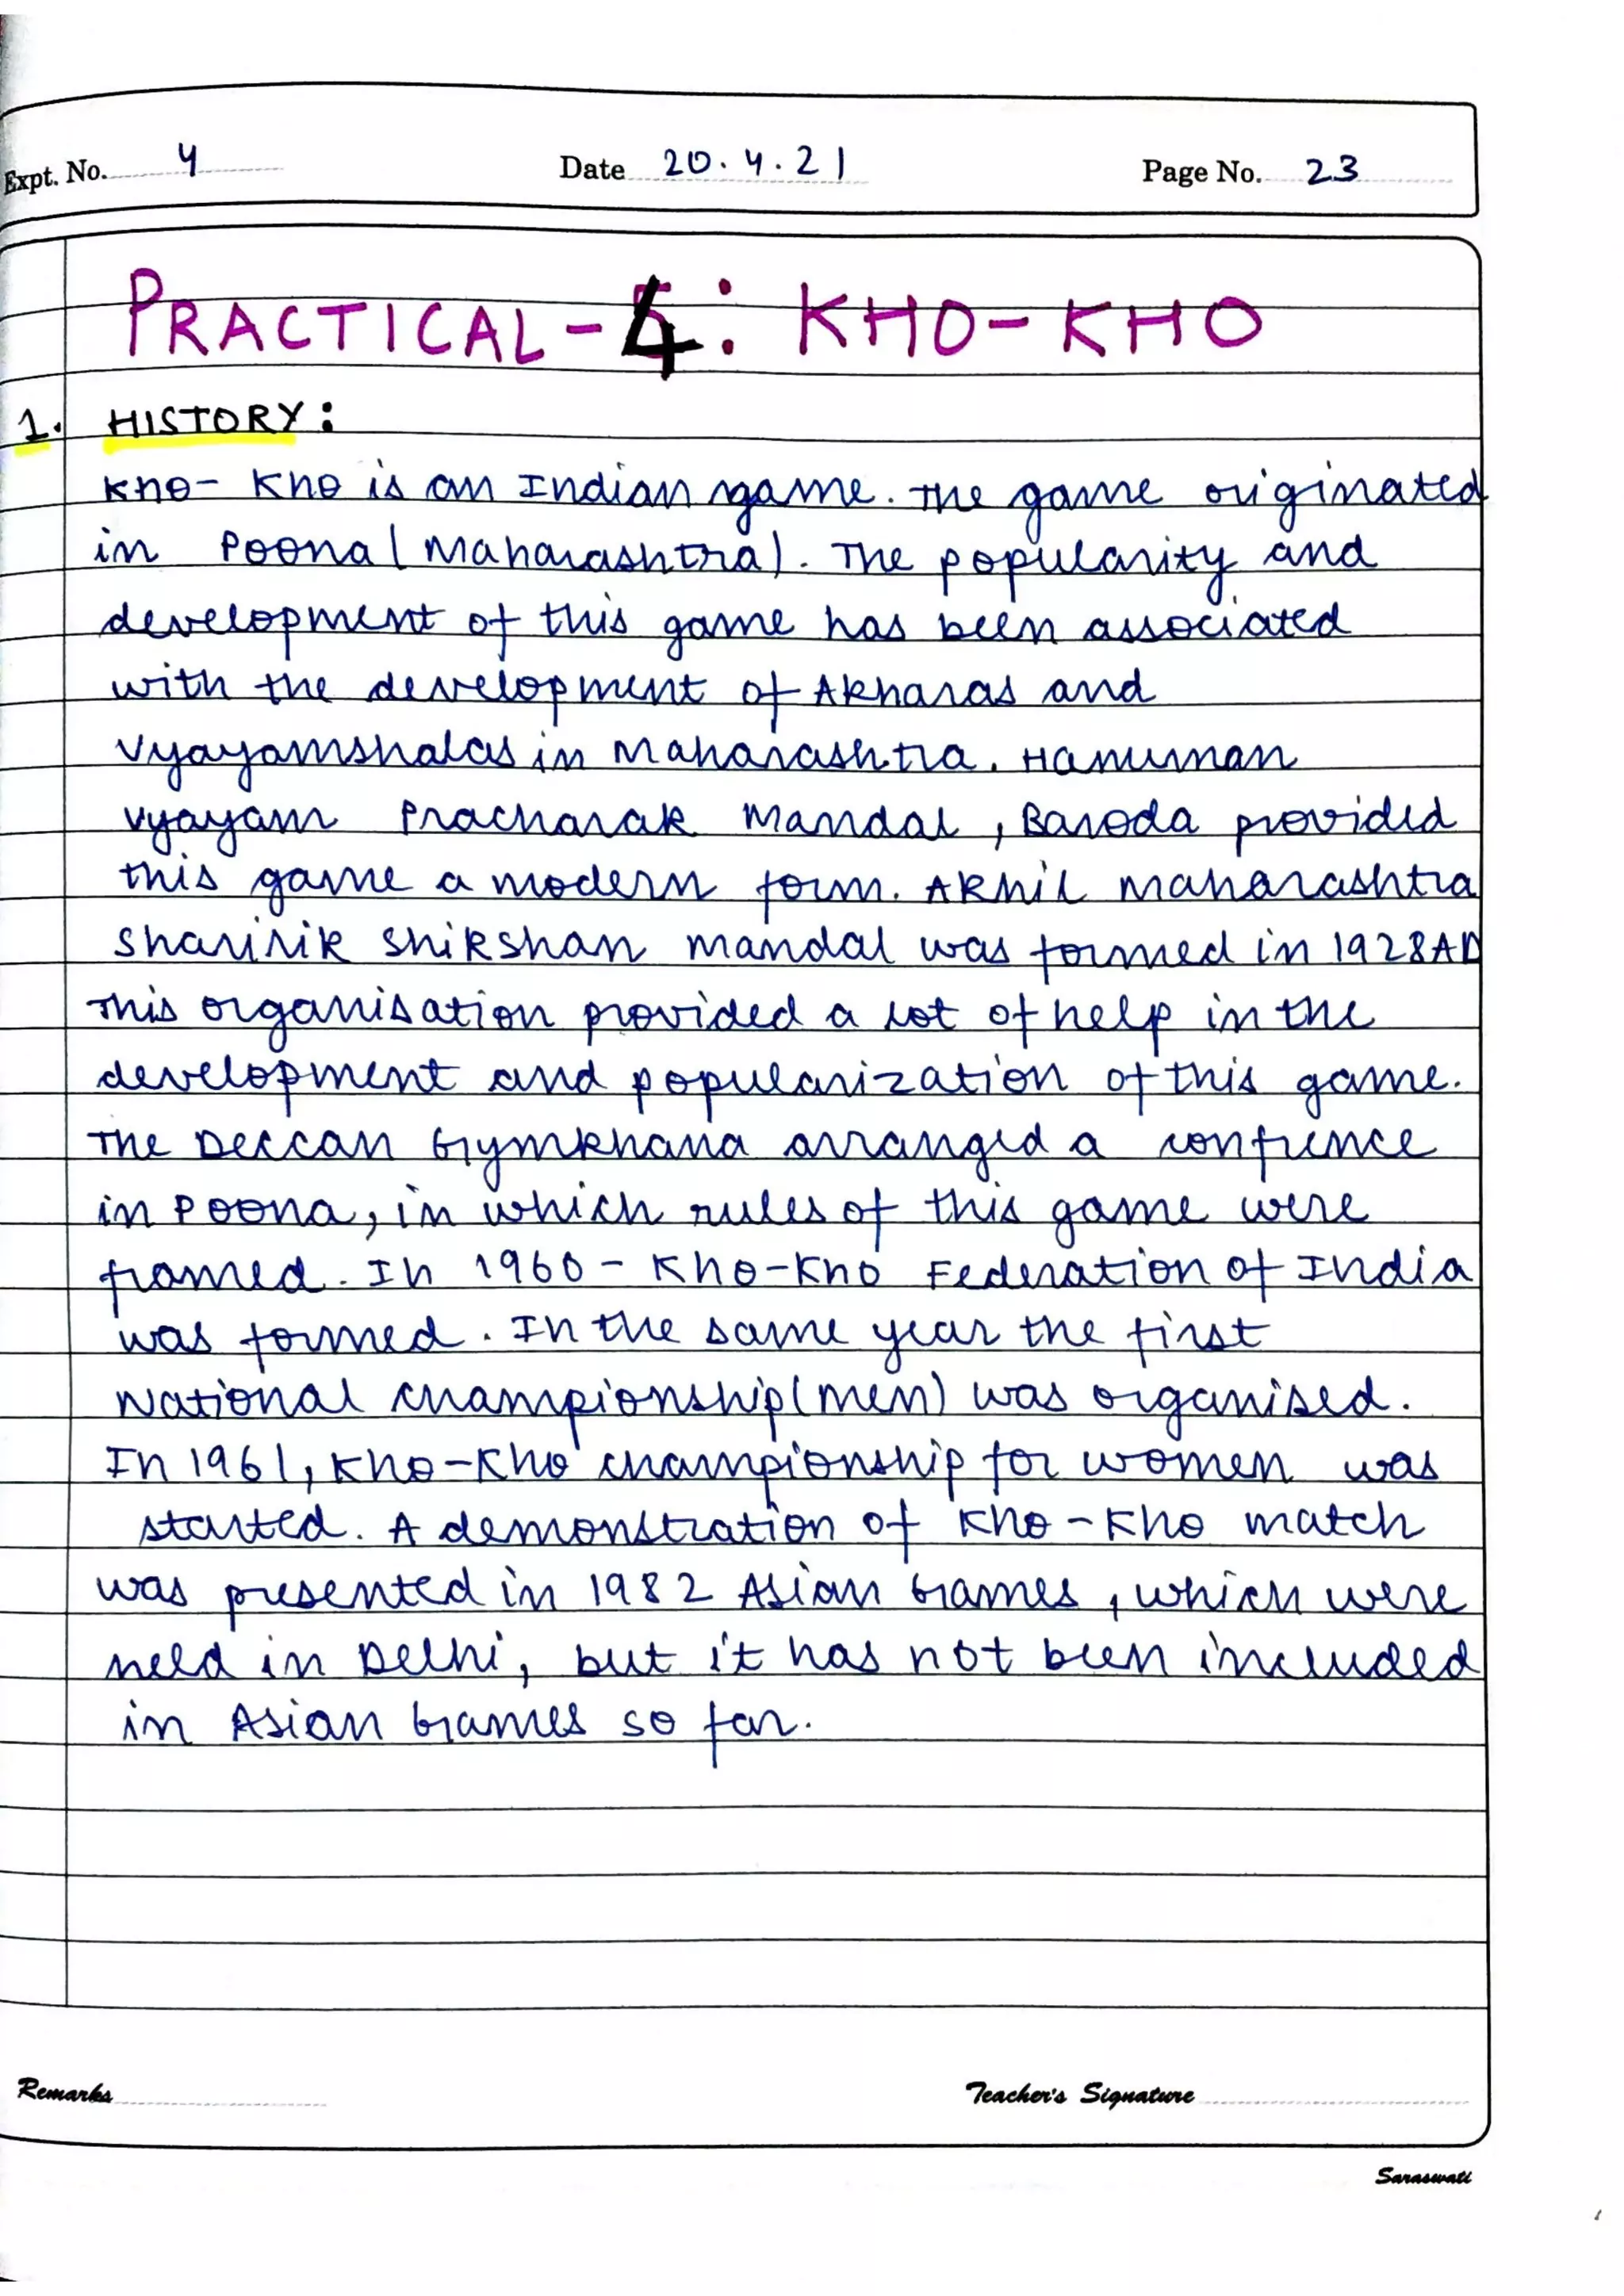 Expt. No. 4 Date 20.4.21 Page No. 23
PRACTICAL-4: KHO-KHO
1. HISTORY:
Kho-Kho is an Indian game. The game originated
in Poona (Maharashtra). The popularity and
development of this game has been associated
with the development of Akharas and
Vyayamshalas in Maharashtra. Hanuman
Vyayam Pracharak Mandal, Baroda provided
this game a modern form. Akhil Maharashtra
Sharirik Shikshan Mandal was formed in 1928AD
This organisation provided a lot of help in the
development and popularization of this game.
The Deccan Gymkhana arranged a confrence
in Poona, in which rules of this game were
framed. In 1960 - Kho-Kho Federation of India
was formed. In the same year the first
National championship(men) was organised.
In 1961, Kho-Kho championship for women was
started. A demonstration of Kho-Kho match
was presented in 1982 Asian Games, which were
held in Delhi, but it has not been included
in Asian Games so far.
Remarks Teacher's Signature
Saraswati